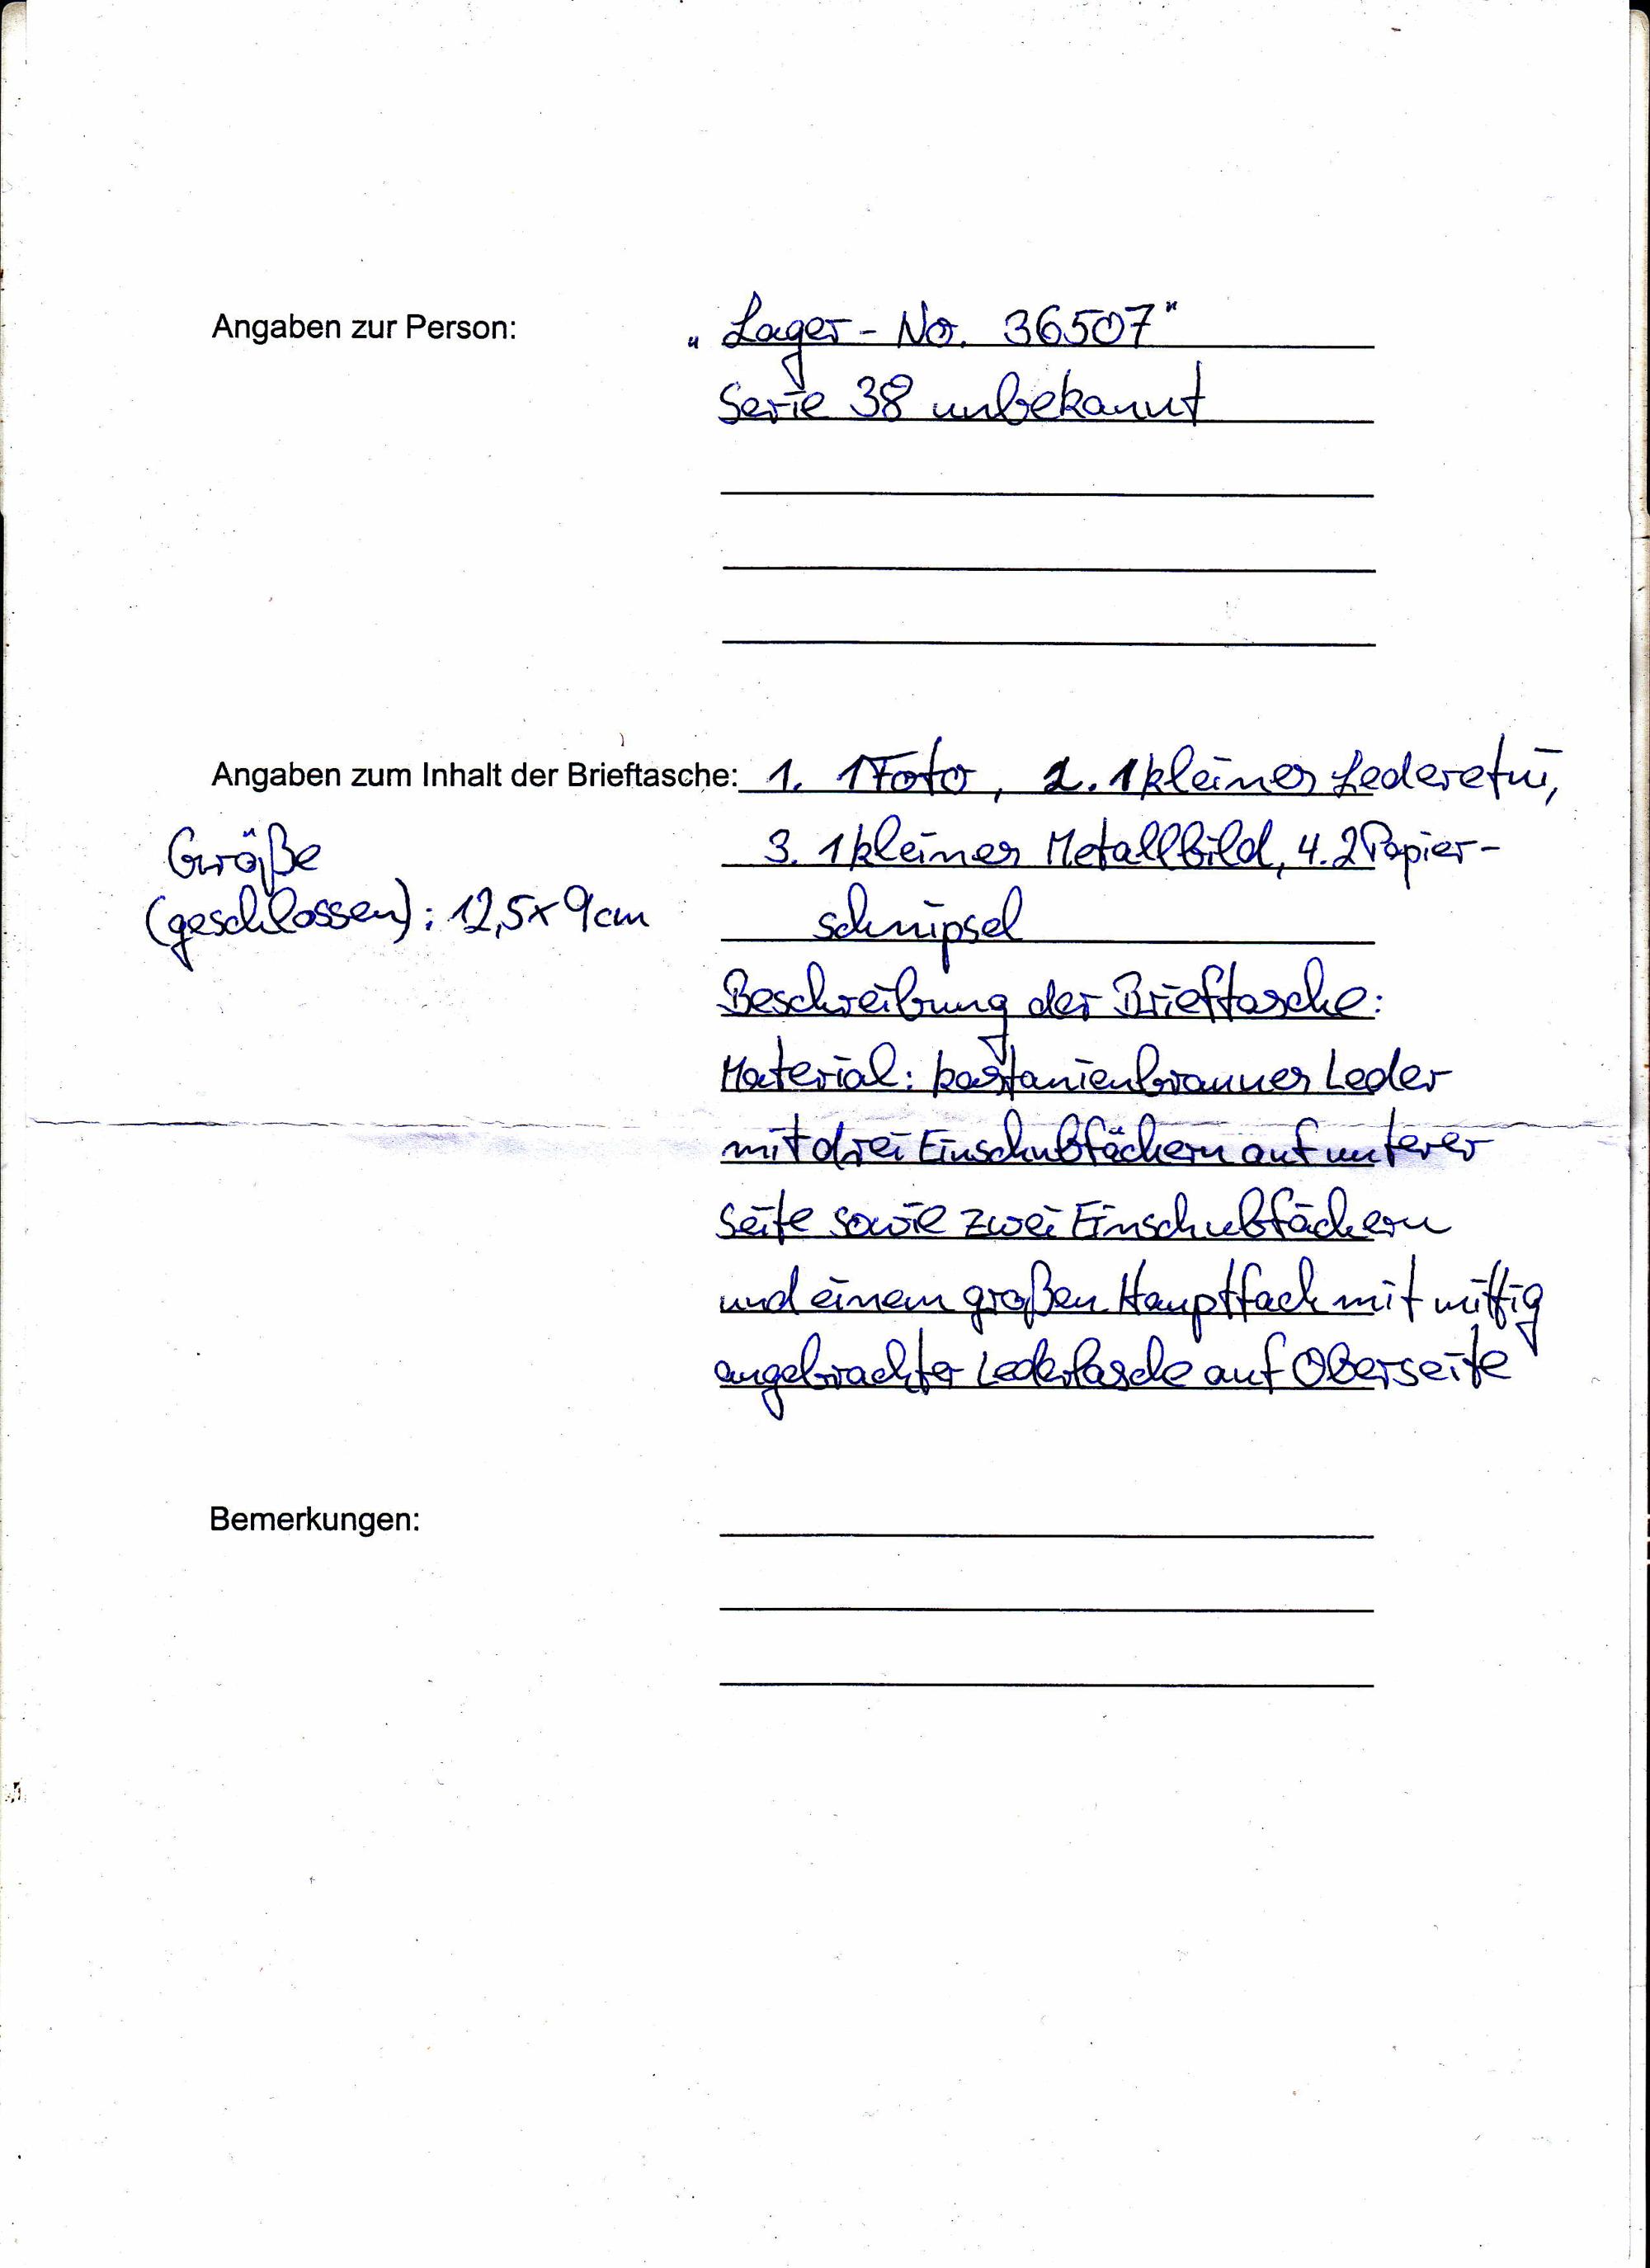 Angaben zur Person: „Lager-No. 36507"
Serie 38 unbekannt
Angaben zum Inhalt der Brieftasche: 1. 1 Foto, 2. 1 kleines Lederetui,
3. 1 kleines Metallbild, 4. 2 Papier-
schnipsel
Größe
(geschlossen): 12,5x9cm
Beschreibung der Brieftasche:
Material: kastanienbraunes Leder
mit drei Einschubfächern auf unterer
Seite sowie zwei Einschubfächern
und einem großen Hauptfach mit mittig
angebrachter Lederlasche auf Oberseite
Bemerkungen: